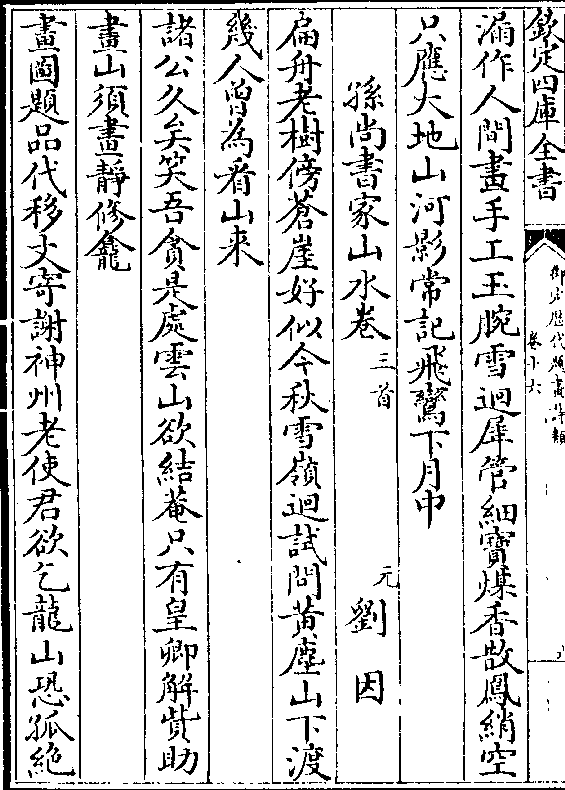 欽定四庫全書
御定歴代題畫詩類
卷十六
漏作人間畫手工玉腕雪迴犀管細寶煤香散鳳綃空
只應大地山河影常記飛鸞下月中
孫尚書家山水卷三首
元劉因
扁舟老樹傍蒼崖好似今秋雪嶺迴試問黄塵山下渡
幾人曾為看山来
諸公久矣笑吾貪是處雲山欲結菴只有皇卿解貲助
畫山須畫靜修龕
畫圖題品代移文寄謝神州老使君欲乞龍山恐孤絶